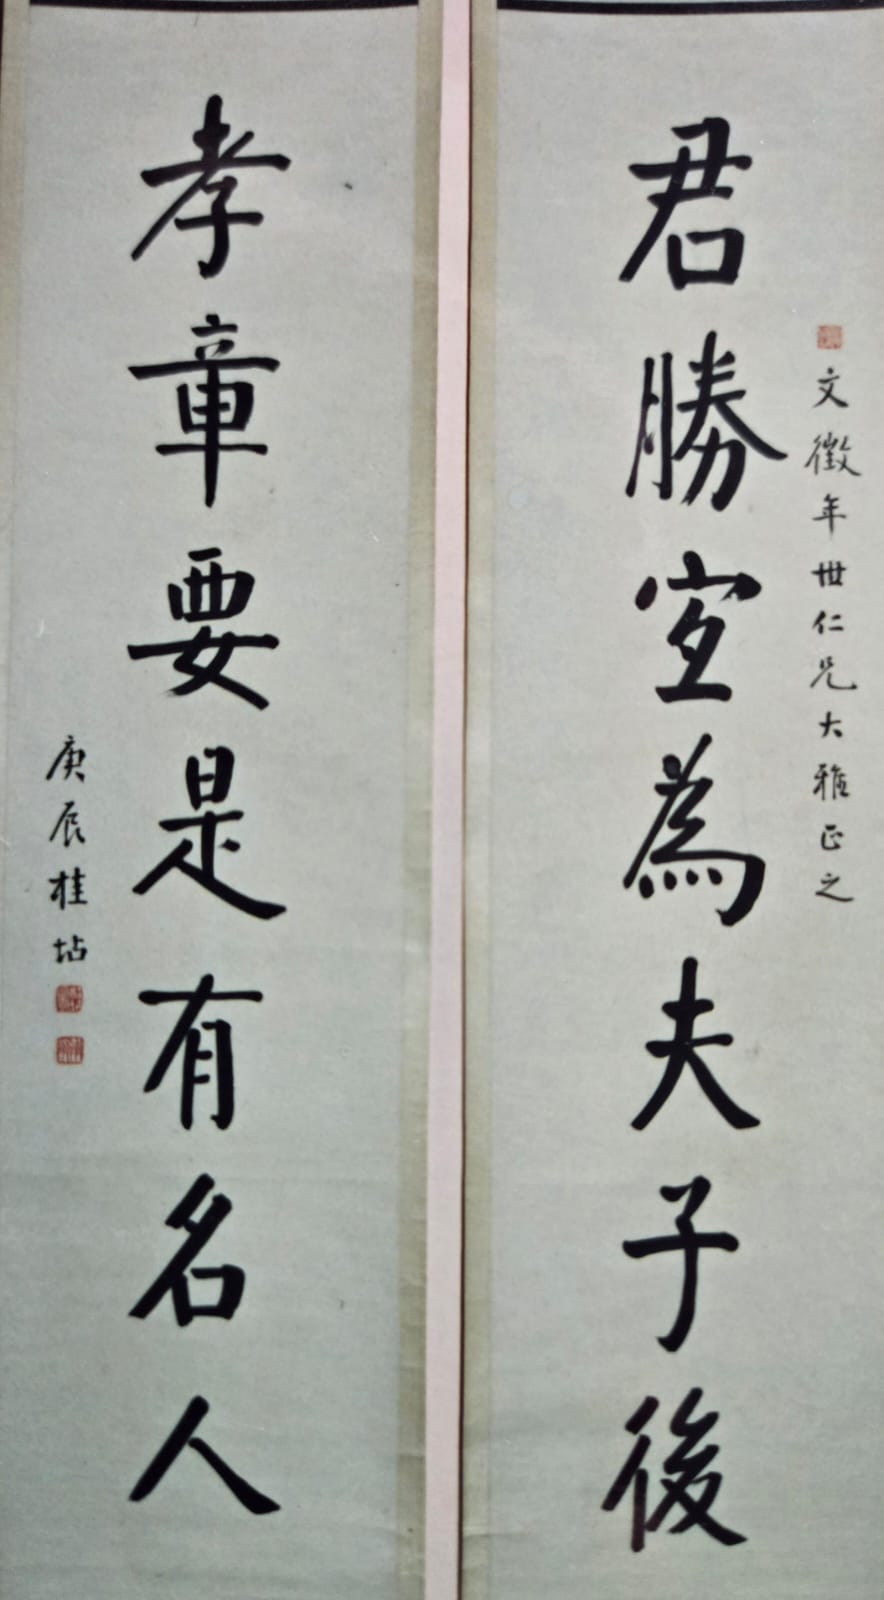 文徵年世仁兄大雅正之
君勝宐為夫子後
孝章要是有名人
庚辰桂坫